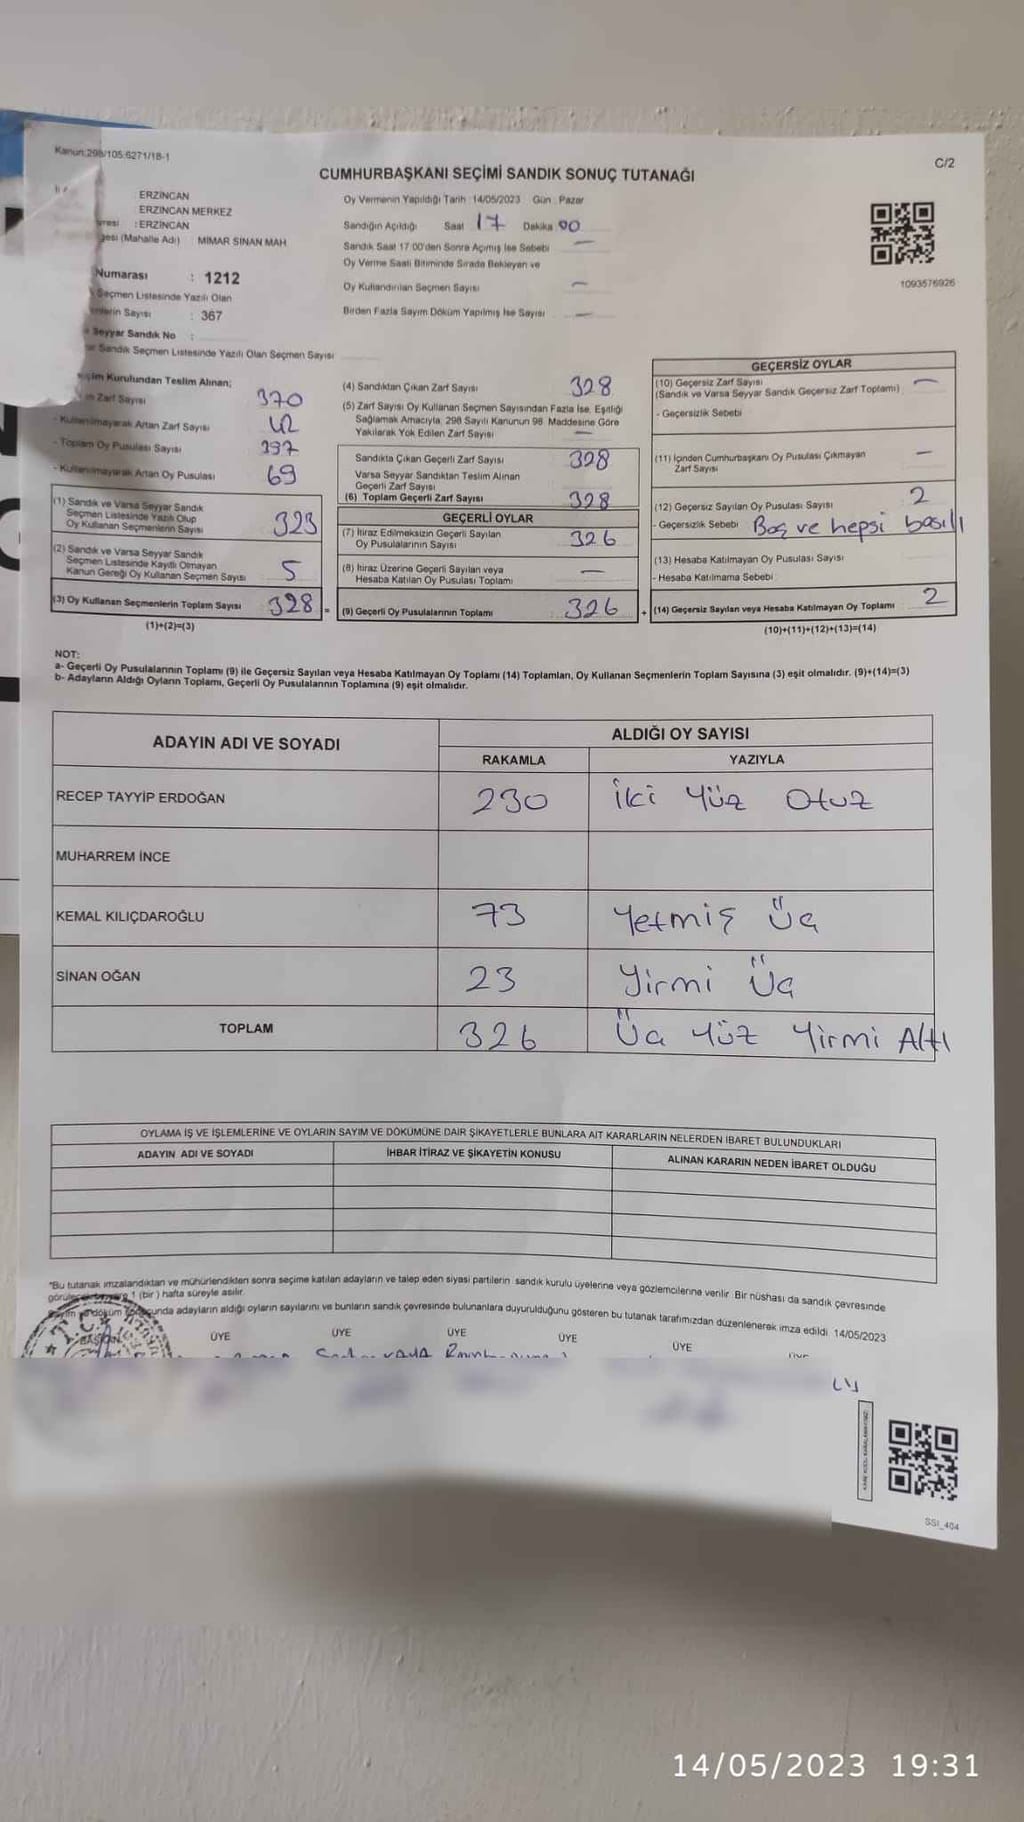 Kanun:298/105.6271/18-1
C/2
CUMHURBAŞKANI SEÇİMİ SANDIK SONUÇ TUTANAĞI
ERZİNCAN
ERZİNCAN MERKEZ
: ERZİNCAN
(Mahalle Adı) : MİMAR SİNAN MAH
Numarası : 1212
Seçmen Listesinde Yazılı Olan
Sayısı : 367
Seyyar Sandık No :
Sandık Seçmen Listesinde Yazılı Olan Seçmen Sayısı
Oy Vermenin Yapıldığı Tarih :14/05/2023 Gün : Pazar
Sandığın Açıldığı Saat 17 Dakika 00
Sandık Saat 17:00'den Sonra Açılmış İse Sebebi —
Oy Verme Saati Bitiminde Sırada Bekleyen ve
Oy Kullandırılan Seçmen Sayısı —
Birden Fazla Sayım Döküm Yapılmış İse Sayısı —
1093576926
Kurulundan Teslim Alınan;
Zarf Sayısı 370
- Kullanılmayarak Artan Zarf Sayısı 42
- Toplam Oy Pusulası Sayısı 397
- Kullanılmayarak Artan Oy Pusulası 69
(1) Sandık ve Varsa Seyyar Sandık
Seçmen Listesinde Yazılı Olup
Oy Kullanan Seçmenlerin Sayısı 323
(2) Sandık ve Varsa Seyyar Sandık
Seçmen Listesinde Kayıtlı Olmayan
Kanun Gereği Oy Kullanan Seçmen Sayısı 5
(3) Oy Kullanan Seçmenlerin Toplam Sayısı 328 =
(1)+(2)=(3)
(4) Sandıktan Çıkan Zarf Sayısı 328
(5) Zarf Sayısı Oy Kullanan Seçmen Sayısından Fazla İse, Eşitliği
Sağlamak Amacıyla, 298 Sayılı Kanunun 98. Maddesine Göre
Yakılarak Yok Edilen Zarf Sayısı —
Sandıkta Çıkan Geçerli Zarf Sayısı 328
Varsa Seyyar Sandıktan Teslim Alınan
Geçerli Zarf Sayısı
(6) Toplam Geçerli Zarf Sayısı 328
GEÇERLİ OYLAR
(7) İtiraz Edilmeksizin Geçerli Sayılan
Oy Pusulalarının Sayısı 326
(8) İtiraz Üzerine Geçerli Sayılan veya
Hesaba Katılan Oy Pusulası Toplamı —
(9) Geçerli Oy Pusulalarının Toplamı 326 +
GEÇERSİZ OYLAR
(10) Geçersiz Zarf Sayısı —
(Sandık ve Varsa Seyyar Sandık Geçersiz Zarf Toplamı)
- Geçersizlik Sebebi
(11) İçinden Cumhurbaşkanı Oy Pusulası Çıkmayan —
Zarf Sayısı
(12) Geçersiz Sayılan Oy Pusulası Sayısı 2
- Geçersizlik Sebebi Boş ve hepsi basılı
(13) Hesaba Katılmayan Oy Pusulası Sayısı
- Hesaba Katılmama Sebebi
(14) Geçersiz Sayılan veya Hesaba Katılmayan Oy Toplamı 2
(10)+(11)+(12)+(13)=(14)
NOT:
a- Geçerli Oy Pusulalarının Toplamı (9) ile Geçersiz Sayılan veya Hesaba Katılmayan Oy Toplamı (14) Toplamları, Oy Kullanan Seçmenlerin Toplam Sayısına (3) eşit olmalıdır. (9)+(14)=(3)
b- Adayların Aldığı Oyların Toplamı, Geçerli Oy Pusulalarının Toplamına (9) eşit olmalıdır.
ADAYIN ADI VE SOYADI
ALDIĞI OY SAYISI
RAKAMLA YAZIYLA
RECEP TAYYİP ERDOĞAN 230 İki Yüz Otuz
MUHARREM İNCE
KEMAL KILIÇDAROĞLU 73 Yetmiş Üç
SİNAN OĞAN 23 Yirmi Üç
TOPLAM 326 Üç Yüz Yirmi Altı
OYLAMA İŞ VE İŞLEMLERİNE VE OYLARIN SAYIM VE DÖKÜMÜNE DAİR ŞİKAYETLERLE BUNLARA AİT KARARLARIN NELERDEN İBARET BULUNDUKLARI
ADAYIN ADI VE SOYADI İHBAR İTİRAZ VE ŞİKAYETİN KONUSU ALINAN KARARIN NEDEN İBARET OLDUĞU
"Bu tutanak imzalandıktan ve mühürlendikten sonra seçime katılan adayların ve talep eden siyasi partilerin sandık kurulu üyelerine veya gözlemcilerine verilir. Bir nüshası da sandık çevresinde
1 (bir) hafta süreyle asılır.
adayların aldığı oyların sayılarını ve bunların sandık çevresinde bulunanlara duyurulduğunu gösteren bu tutanak tarafımızdan düzenlenerek imza edildi. 14/05/2023
T.C.
ÜYE ÜYE ÜYE ÜYE ÜYE
SSI_404
14/05/2023 19:31